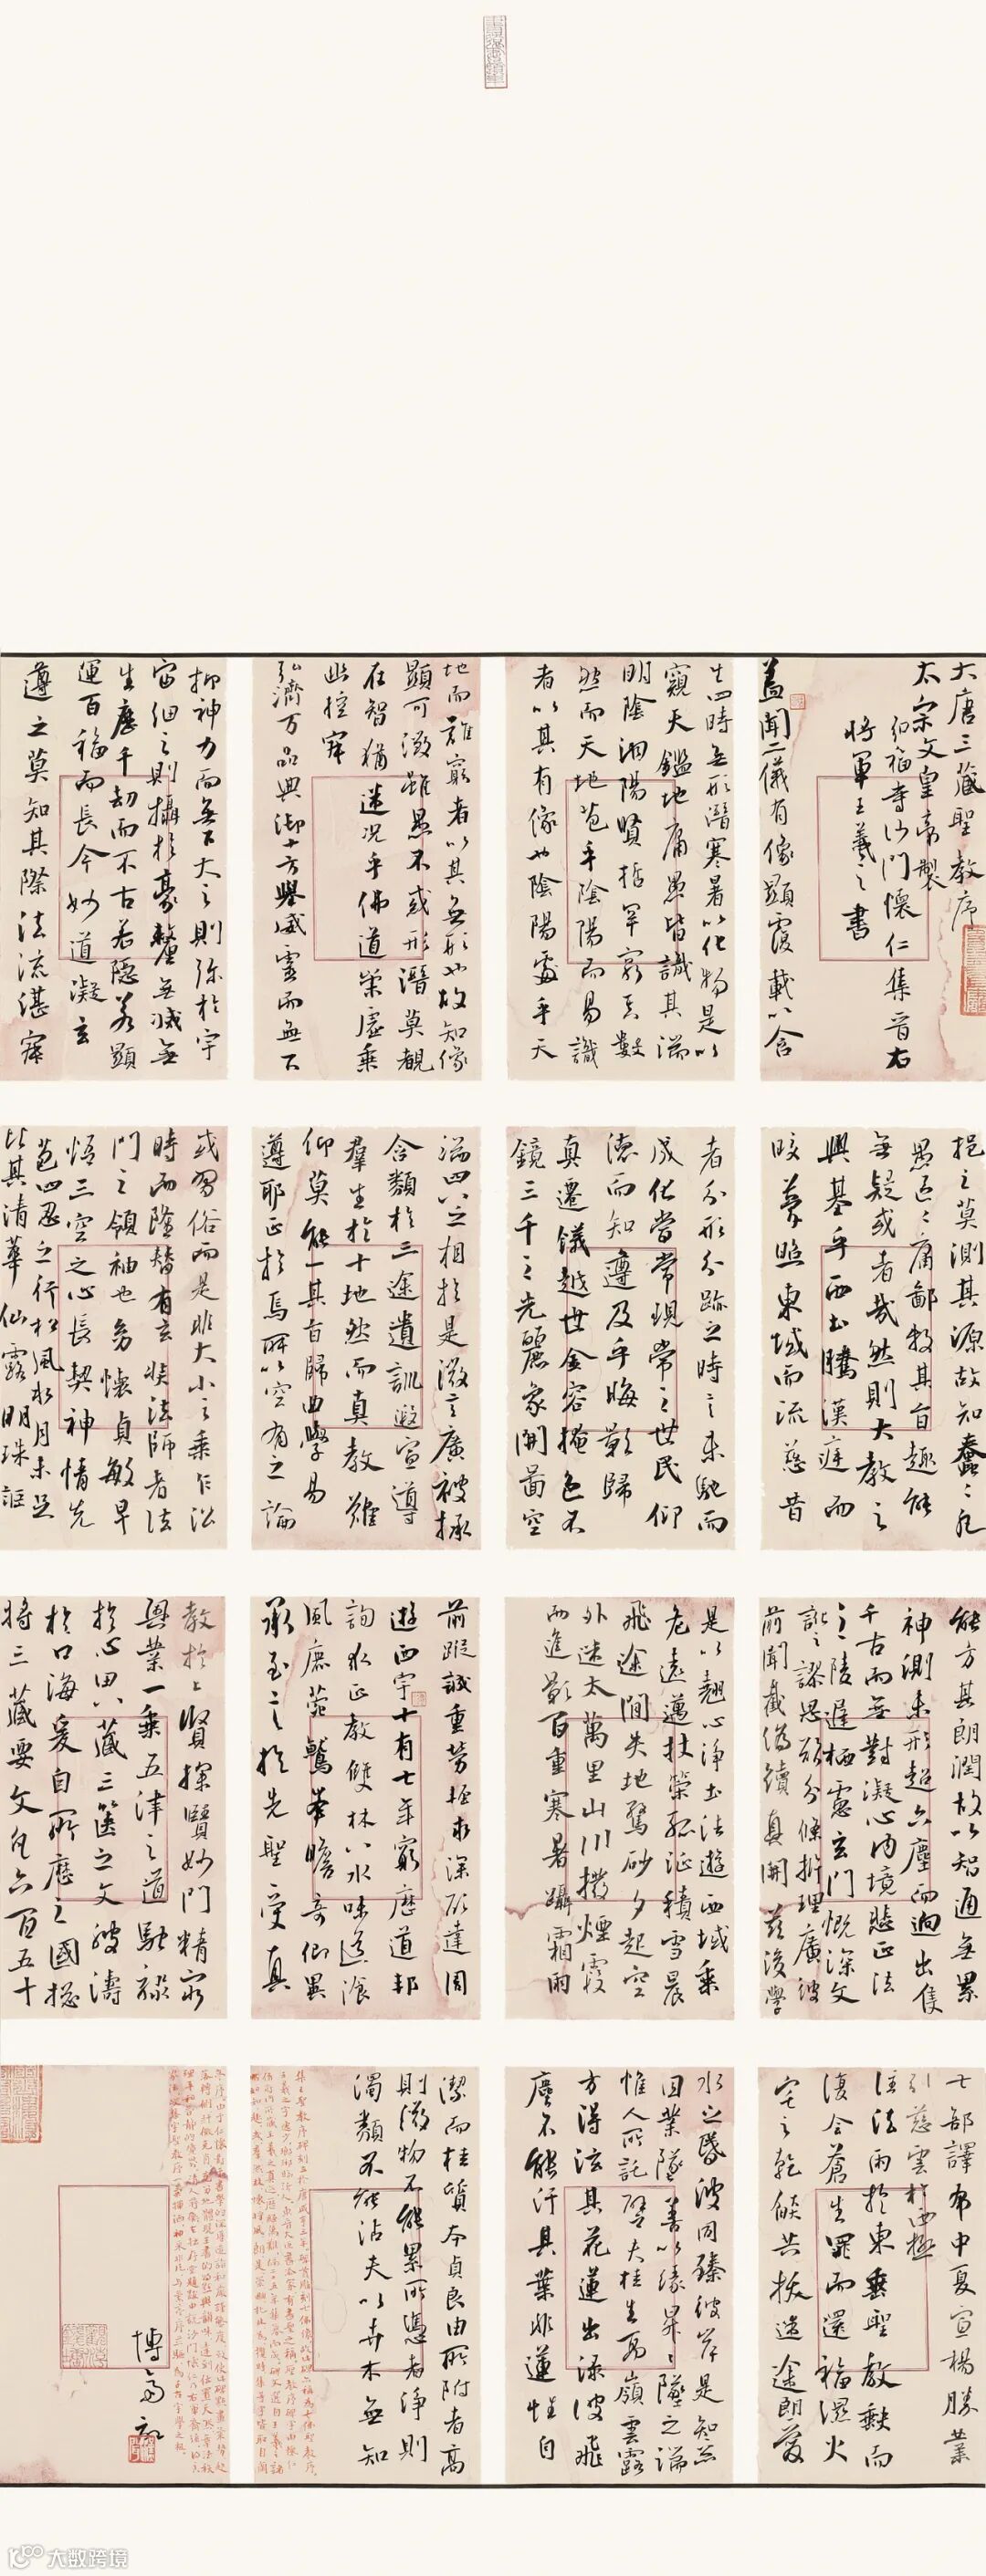 大唐三藏聖教序
太宗文皇帝製
弘福寺沙門懷仁集晉右
將軍王羲之書
蓋聞二儀有像顯覆載以含
生四時無形潛寒暑以化物是以
窺天鑑地庸愚皆識其端
明陰洞陽賢哲罕窮其數
然而天地苞乎陰陽而易識
者以其有像也陰陽處乎天
地而難窮者以其無形也故知像
顯可徵雖愚不惑形潛莫覩
在智猶迷况乎佛道崇虛乘
幽控寂
弘濟万品典御十方舉威靈而無上
抑神力而無下大之則弥於宇
宙細之則攝於豪釐無滅無
生歷千劫而不古若隱若顯
運百福而長今妙道凝玄
遵之莫知其際法流湛寂
挹之莫測其源故知蠢〻凡
愚區〻庸鄙投其旨趣能
無疑或者哉然則大教之
興基乎西土騰漢庭而
皎夢照東域而流慈昔
者分形分跡之時言未馳而
成化當常現常之世民仰
德而知遵及乎晦影歸
真遷儀越世金容掩色不
鏡三千之光麗象開圖空
端四八之相於是微言廣被拯
含類於三途遺訓遐宣導
羣生於十地然而真教難
仰莫能一其旨歸曲學易
遵耶正於焉紛以空有之論
或習俗而是非大小之乘乍沿
時而隆替有玄奘法師者法
門之領袖也㓜懷貞敏早
悟三空之心長契神情先
苞四忍之行松風水月未足
比其清華仙露明珠詎
能方其朗潤故以智通無累
神測未形超六塵而迥出隻
千古而無對凝心內境悲正法
之陵遲栖慮玄門慨深文
訛謬思欲分條析理廣彼
前聞截偽續真開茲後學
是以翹心淨土法遊西域乘
危遠邁杖策孤征積雪晨
飛途間失地驚砂夕起空
外迷天萬里山川撥煙霞
而進影百重寒暑躡霜雨
前蹤誠重勞輕求深願達周
遊西宇十有七年窮歷道邦
詢求正教雙林八水味道湌
風鹿菀鷲峯瞻奇仰異
承至言於先聖受真
教於上賢探賾妙門精窮
奧業一乘五律之道馳驟
於心田八藏三篋之文波濤
於口海爰自所歷之國揔
將三藏要文凡六百五十
七部譯布中夏宣揚勝業
引慈雲於西極
注法雨於東垂聖教缺而
復全蒼生罪而還福濕火
宅之乾燄共拔迷途朗愛
水之昏波同臻彼岸是知惡
因業墜善以緣昇昇墜之端
惟人所託譬夫桂生高嶺雲露
方得泫其花蓮出淥波飛
塵不能汙其葉非蓮性自
潔而桂質本貞良由所附者高
則微物不能累所憑者淨則
濁類不能沾夫以卉木無知
大数跨境